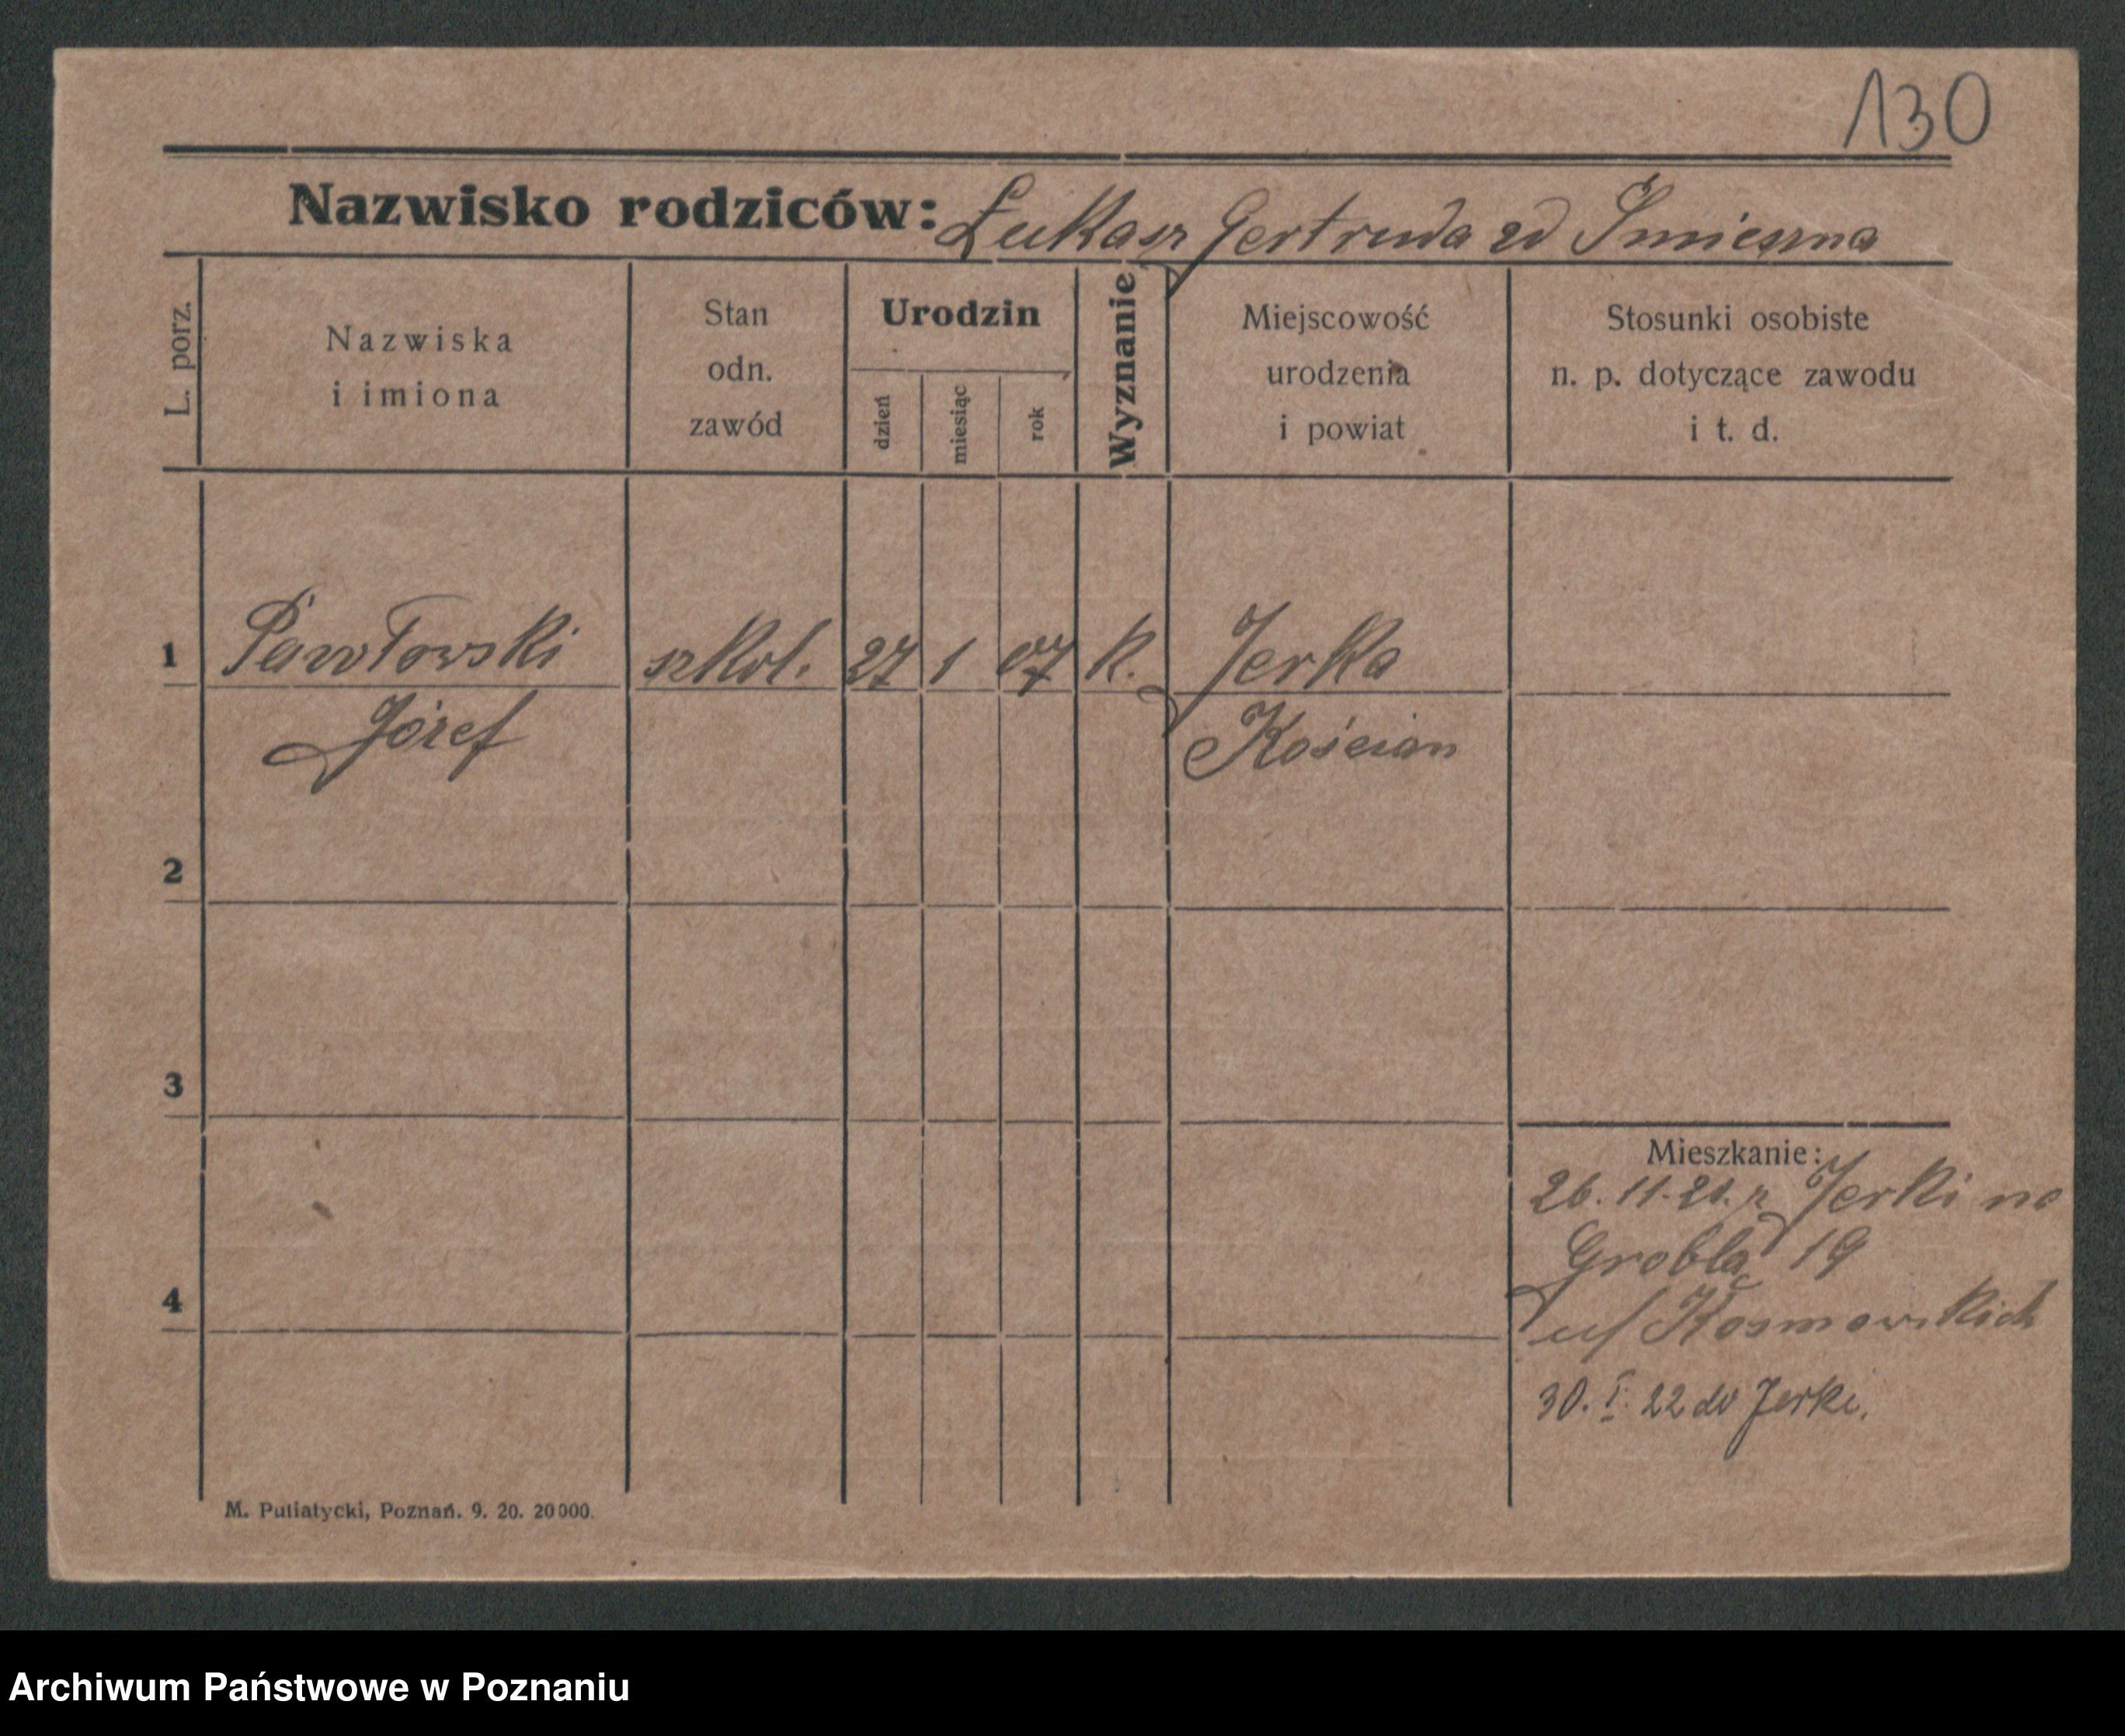 130
Nazwisko rodziców: Łukasz Gertruda zd Śmieszna
L. porz.
Nazwiska
i imiona
Stan
odn.
zawód
Urodzin
dzień
miesiąc
rok
Wyznanie
Miejscowość
urodzenia
i powiat
Stosunki osobiste
n. p. dotyczące zawodu
i t. d.
1 Pawłowski szkol. 27 1 07 k. Jerka
Józef Kościan
2
3
Mieszkanie:
26. 11. 21. z Jerki na
Groblą 19
4
u/ Kosmowskich
30. I. 22 do Jerki.
M. Putiatycki, Poznań. 9. 20. 20000.
Archiwum Państwowe w Poznaniu